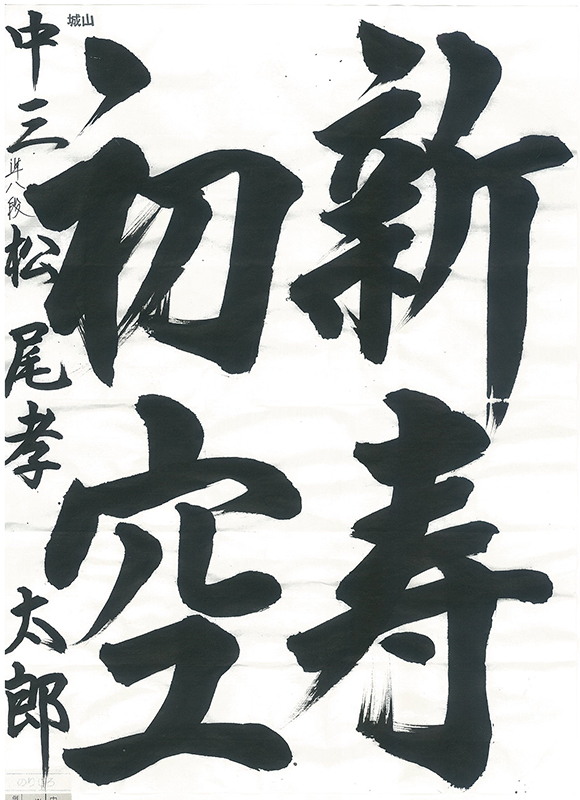 新寿
初空
城山
中三 準八段 松尾孝太郎